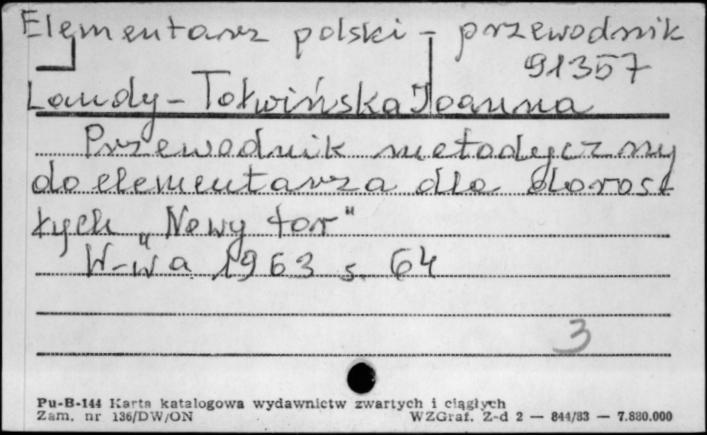 Elementarz polski - przewodnik
91357
Landy-Tołwińska Joanna
Przewodnik metodyczny
do elementarza dla dorosł
łych „Nowy tor"
W-wa 1963 s. 64
3
Pu-B-144 Karta katalogowa wydawnictw zwartych i ciągłych
Zam. nr 136/DW/ON WZGraf. Z-d 2 — 844/83 — 7.880.000